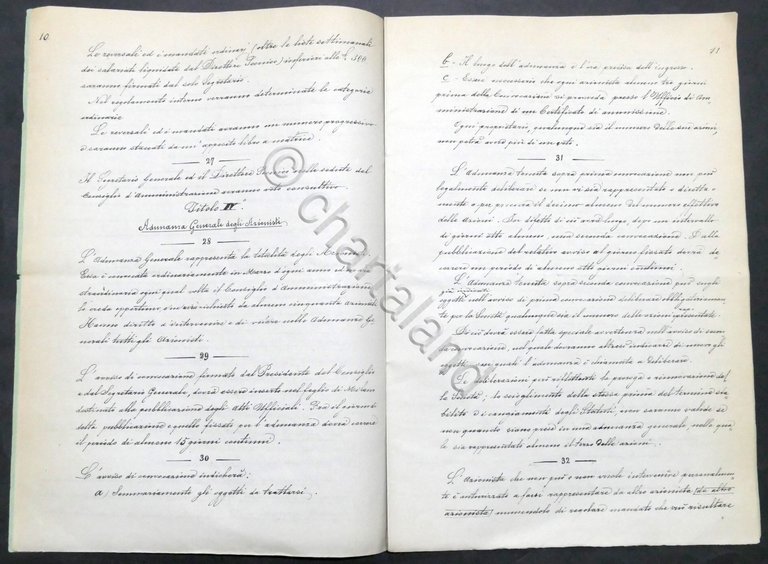 10
Le reversali ed i mandati ordinari (oltre le liste settimanali
dei salariati liquidate dal Direttore Tecnico) inferiori alle £ 500
saranno firmati dal solo Segretario.
Nel regolamento interno verranno determinate le categorie
ordinarie.
Le reversali ed i mandati avranno un numero progressivo
e saranno staccati da un apposito libro a matrice.
27
Il Segretario Generale ed il Direttore Tecnico nelle sedute del
Consiglio d'Amministrazione avranno voto consultivo.
Titolo IV
Adunanza Generale degli Azionisti
28
L'Adunanza Generale rappresenta la totalità degli Azionisti.
Essa è convocata ordinariamente in Marzo d'ogni anno ed in
straordinaria ogni qual volta il Consiglio d'Amministrazione
lo creda opportuno, o ne sia richiesto da almeno cinquanta Azionisti.
Hanno diritto d'intervenire e di votare nelle Adunanze Ge-
nerali tutti gli Azionisti.
29
L'avviso di convocazione firmato dal Presidente del Consiglio
e dal Segretario Generale, dovrà essere inserto nel foglio di Modena
destinato alla pubblicazione degli Atti Ufficiali. Fra il giorno
della pubblicazione e quello fissato per l'adunanza dovrà correre
il periodo di almeno 15 giorni continui.
30
L'avviso di convocazione indicherà:
a) Sommariamente gli oggetti da trattarsi.
11
b - Il luogo dell'adunanza e l'ora precisa dell'ingresso.
c - Essere necessario che ogni azionista almeno tre giorni
prima della Convocazione si provveda presso l'Ufficio di Am-
ministrazione di un Certificato di ammissione.
Ogni proprietario, qualunque sia il numero delle sue azioni,
non potrà avere più di un voto.
31
L'Adunanza tenuta sopra prima convocazione non può
legalmente deliberare se non vi sia rappresentato o direttamen-
te o per procura il decimo almeno del numero effettivo
delle Azioni. Per difetto di ciò avrà luogo, dopo un intervallo
di giorni otto almeno, una seconda convocazione. E dalla
pubblicazione del relativo avviso al giorno fissato dovrà de-
correre un periodo di almeno otto giorni continui.
L'Adunanza tenuta sopra seconda convocazione può sugli
già indicati
oggetti nell'avviso di prima convocazione deliberare obbligatoriamen-
te per la Società qualunque sia il numero delle azioni rappresentate.
Di ciò dovrà essere fatta speciale avvertenza nell'avviso di secon-
da convocazione, nel quale dovranno altresì indicarsi di nuovo gli
oggetti sui quali l'adunanza è chiamata a deliberare.
Le deliberazioni però riflettenti la proroga o rinnovazione del-
la Società; lo scioglimento della stessa prima del termine sta-
bilito o i cangiamenti degli Statuti, non saranno valide se
non quando siano prese in una adunanza generale, nella qua-
le sia rappresentato almeno il terzo delle azioni.
32
L'Azionista che non può o non vuole intervenire personalmen-
te è autorizzato a farsi rappresentare da altro azionista (da altro
azionista) munendolo di regolare mandato che può risultare